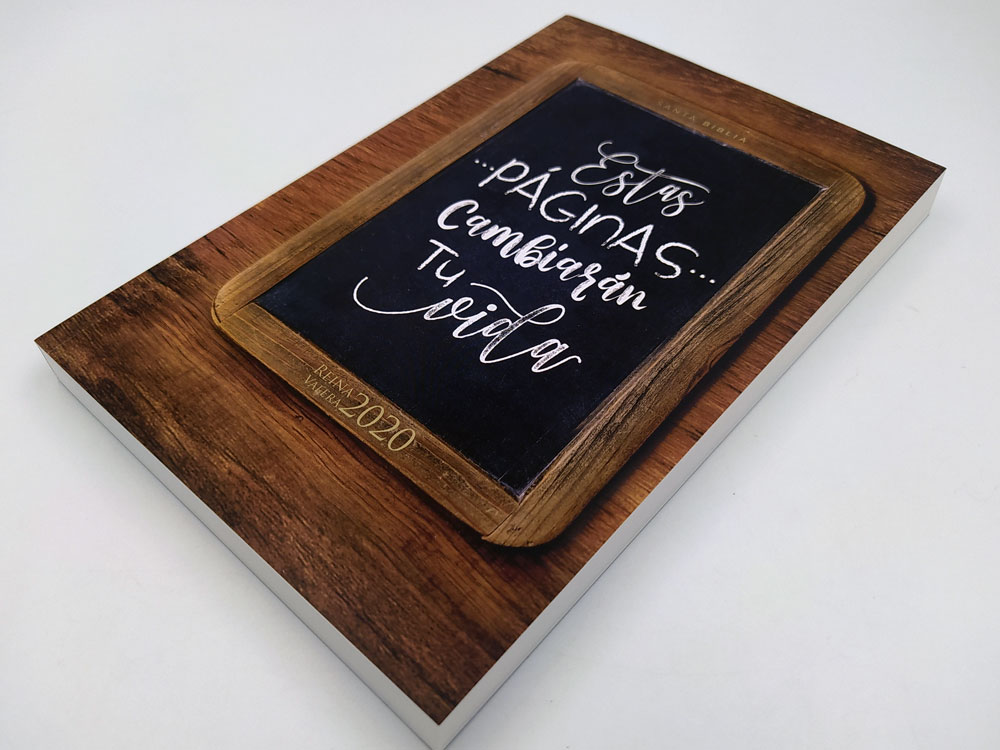 SANTA BIBLIA
Estas
...PÁGINAS...
Cambiarán
Tu
vida
REINA
VALERA
2020